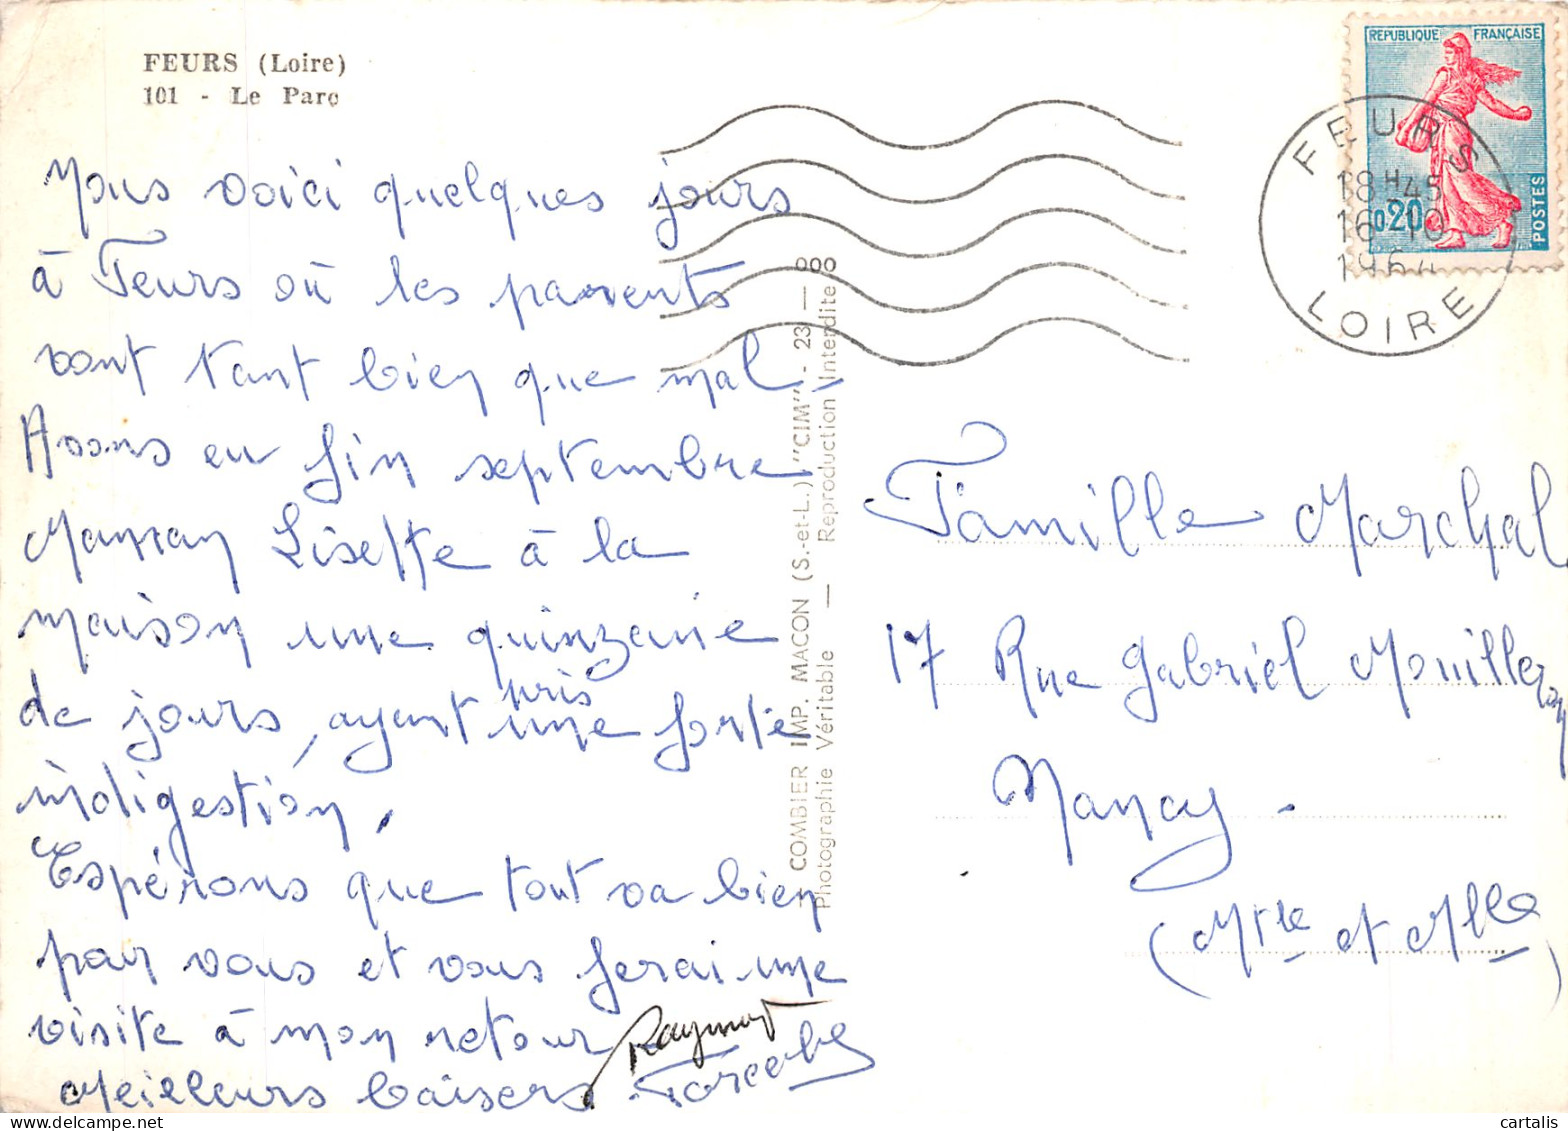 FEURS (Loire)
101 - Le Parc
Nous voici quelques jours
à Feurs où les parents
vont tant bien que mal.
Avons eu fin septembre
Maman Lisette à la
maison une quinzaine
de jours, ayant pris une forte
indigestion.
Espérons que tout va bien
pour vous et vous ferai une
visite à mon retour
Meilleurs baisers.
Raymond
COMBIER IMP. MACON (S.-et-L.) "CIM" - 23 — 000
Photographie Véritable — Reproduction Interdite
REPUBLIQUE FRANÇAISE
0,20
POSTES
FEURS
18H45
16-10
1964
LOIRE
Famille Marchal
17 Rue Gabriel Mouilleron
Nancy.
(Mtle et Mlle)